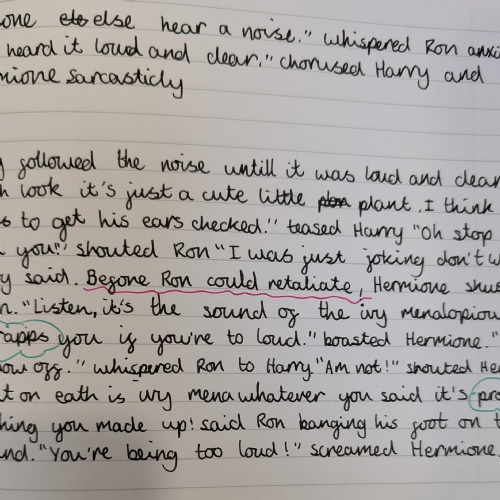 one else hear a noise." whispered Ron anxi
heard it loud and clear." chorused Harry and
mione sarcasticly
y followed the noise untill it was loud and clear
look it's just a cute little plant. I think
to get his ears checked." teased Harry "Oh stop
you!" shouted Ron "I was just joking don't w
y said. Begone Ron could retaliate, Hermione shus
n. "Listen, it's the sound of the ivy menalopiou
rapps you if you're to loud." boasted Hermione. "
ow off." whispered Ron to Harry. "Am not!" shouted He
t on eath is ivy mena whatever you said it's pro
hing you made up! said Ron banging his foot on t
und. "You're being too loud!" screamed Hermione.